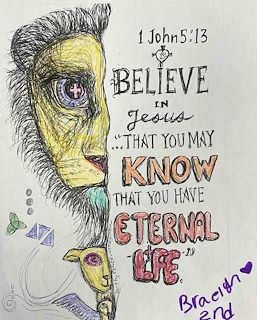 1 John 5:13
BELIEVE
IN
Jesus
"...THAT YOU MAY
KNOW
THAT YOU HAVE
ETERNAL
LIFE."
Braelyn
2nd